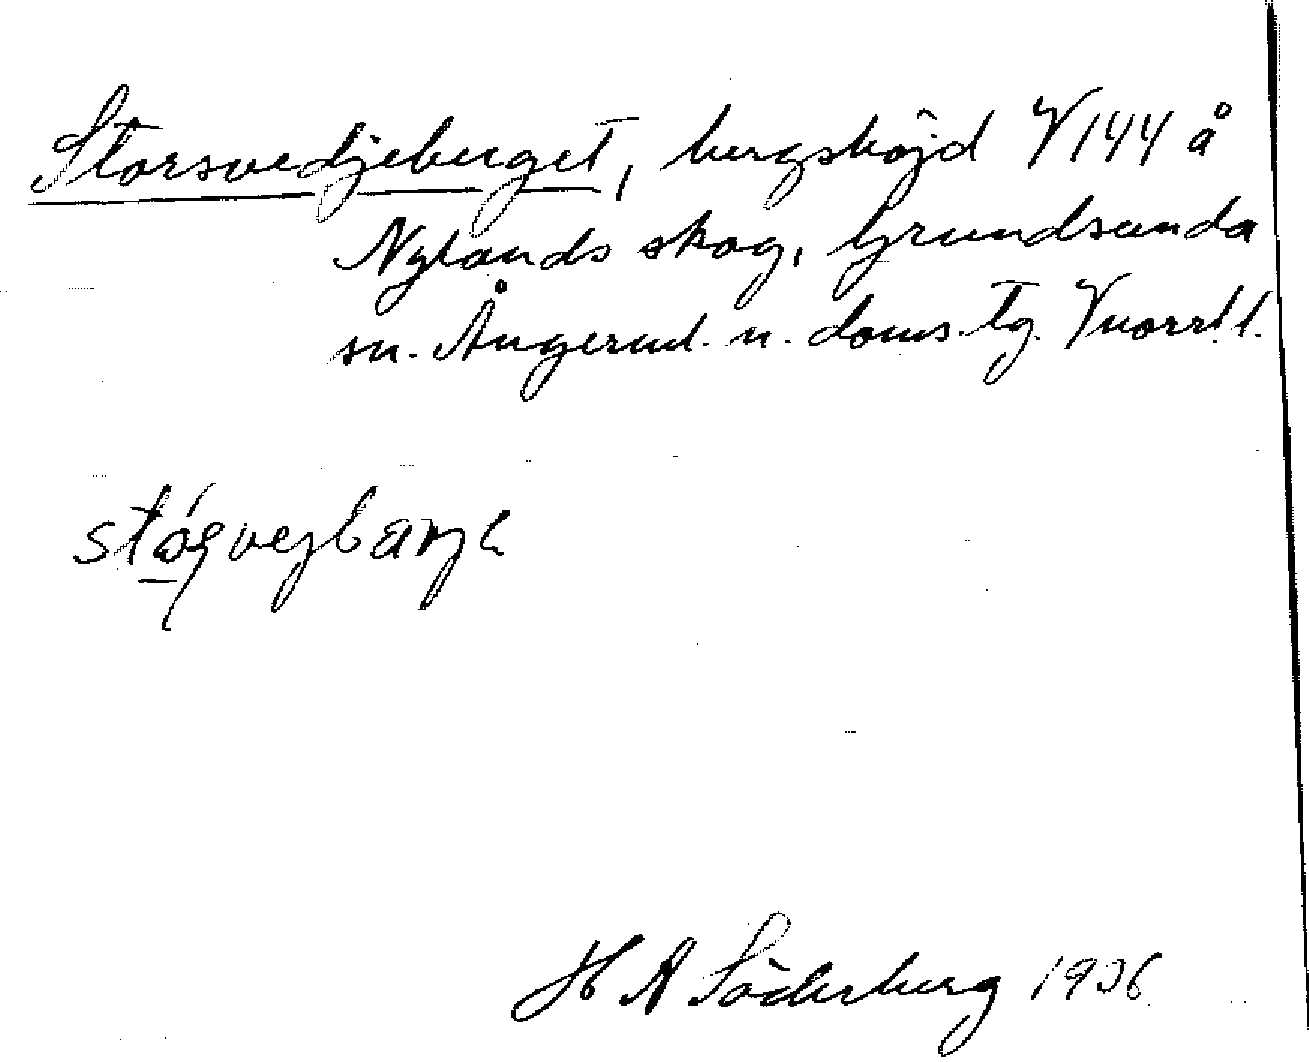 Storsvedjeberget, bergshöjd V144 å
Nylands skog, Grundsunda
sn. Ångerml. n. doms. tg. Vnorrl l.
H A Söderberg 1936